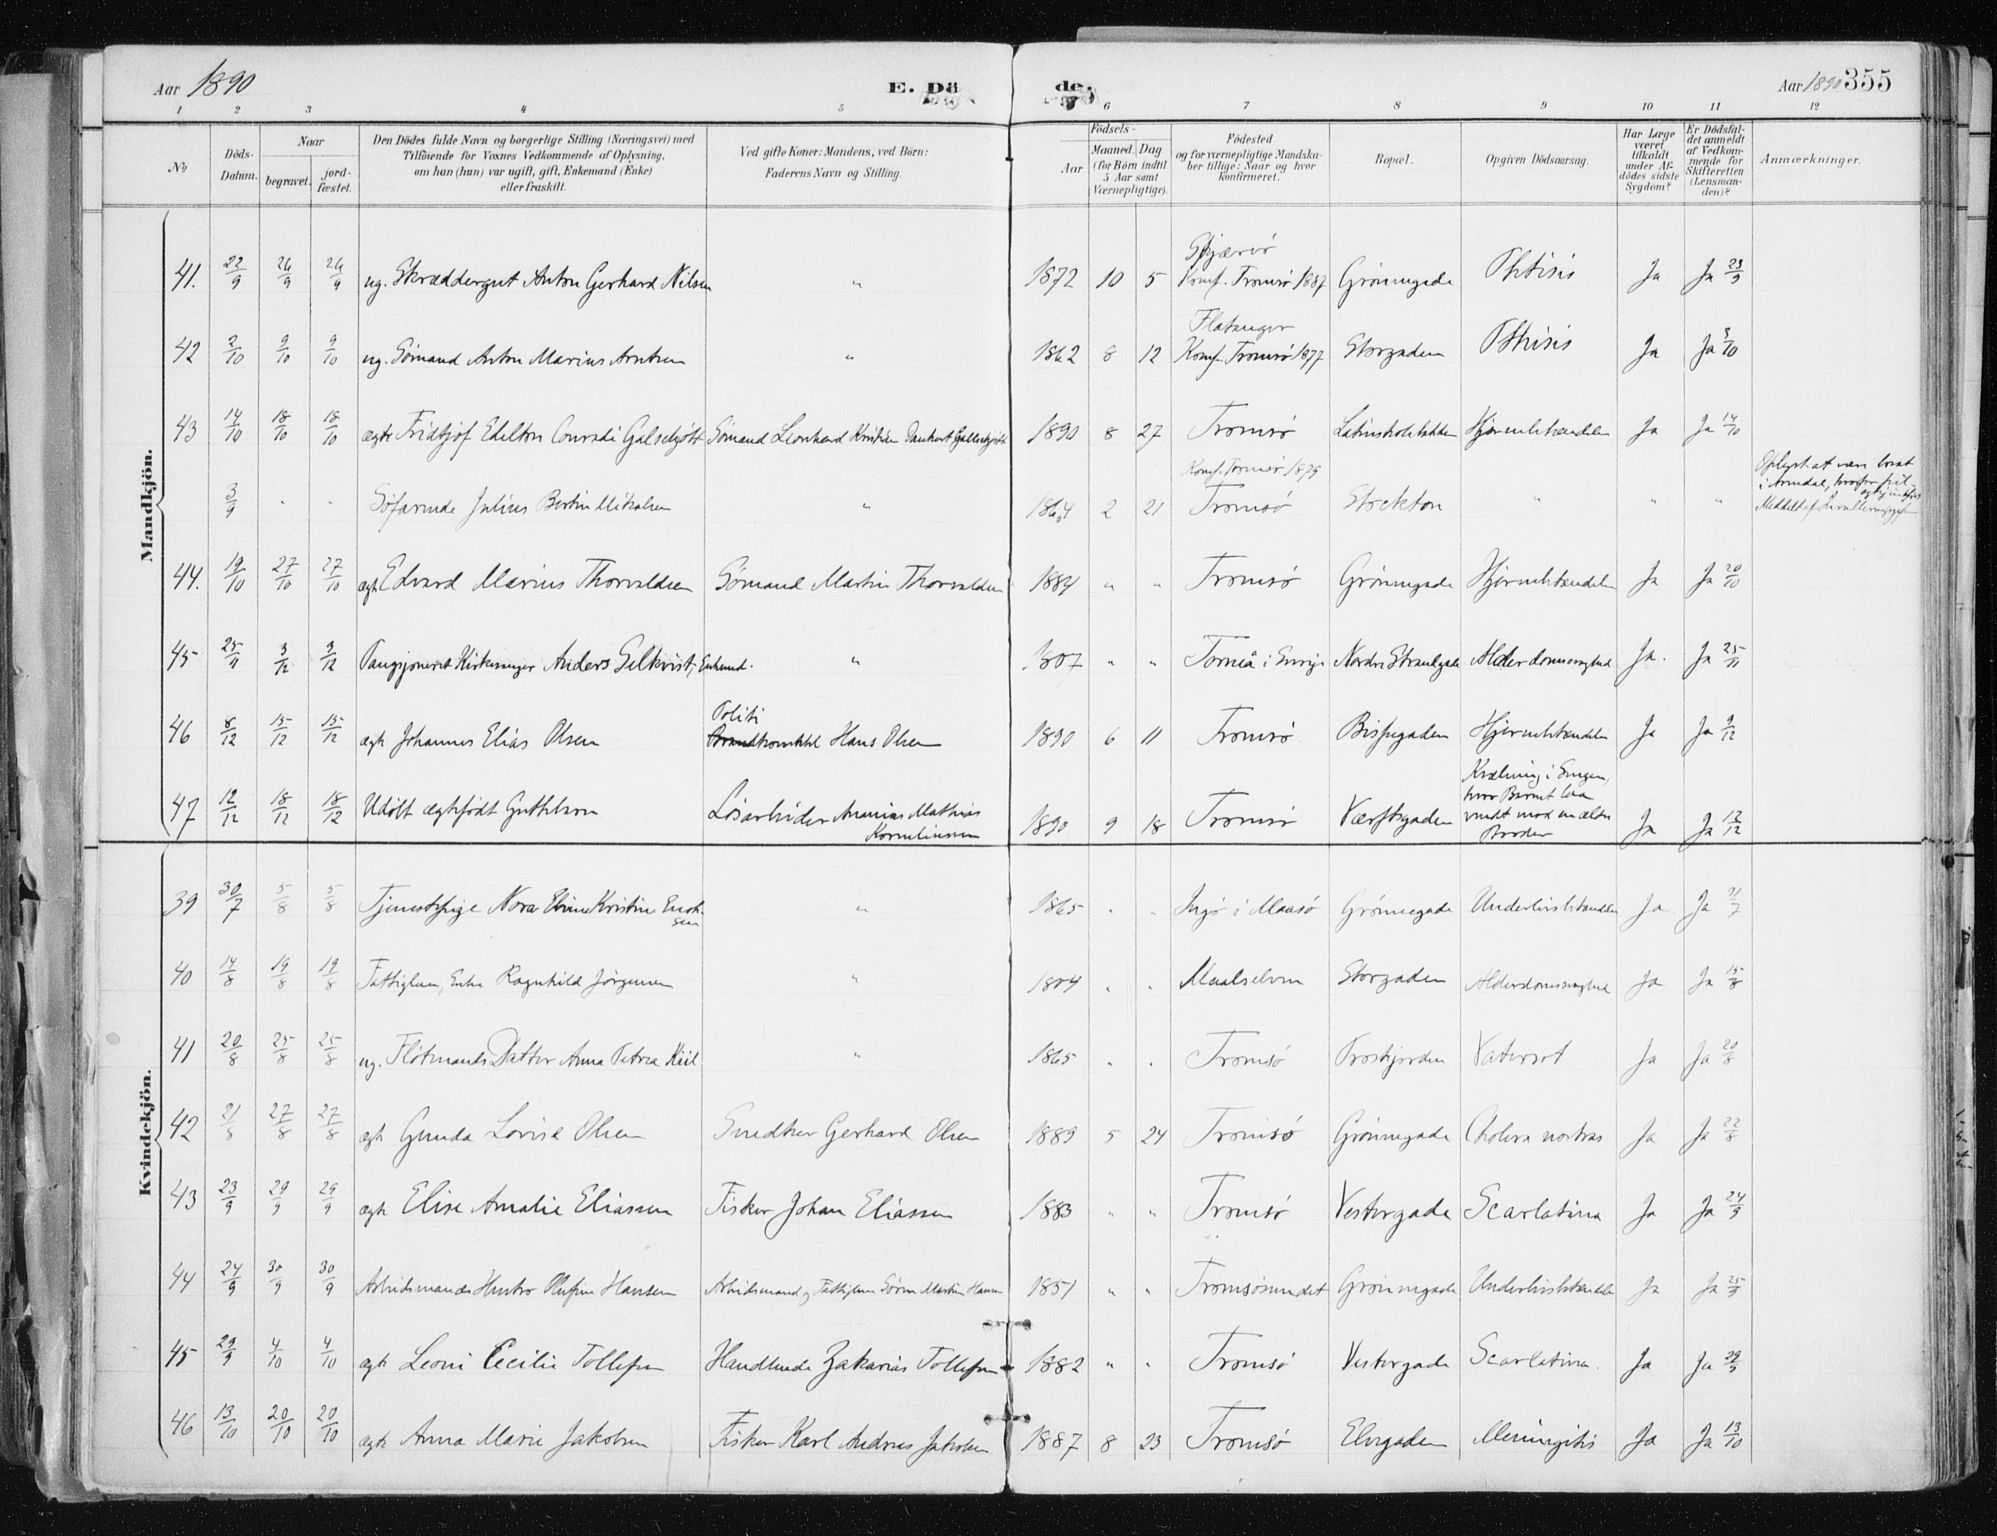 Aar 1890 E. Dö de. Aar 1890 355
1 2 3 4 5 6 7 8 9 10 11 12
No
Döds-Datum.
Naar
begravet.
jordfæstet.
Den Dödes fulde Navn og borgerlige Stilling (Næringsvei) med
Tilföiende for Voxnes Vedkommende af Oplysning,
om han (hun) var ugift, gift, Enkemand (Enke)
eller fraskilt.
Ved gifte Koner: Mandens, ved Börn:
Faderens Navn og Stilling.
Födsels-
Aar
Maaned. Dag.
(for Börn indtil
5 Aar samt
Værnepligtige).
Födested
og for værnepligtige Mandskaber tillige: Naar og hvor
konfirmeret.
Bopæl.
Opgiven Dödsaarsag.
Har Læge
været
tilkaldt
under Afdödes sidste
Sygdom?
Er Dödsfaldet anmeldt
af Vedkommende for
Skifteretten
(Lensmanden)?
Anmærkninger.
Mandkjön.
41. 22/9 26/9 26/9 ug. Skræddergut Anton Gerhard Nilsen " 1872 10 5 Skjærvö Konf. Tromsö 1887 Grönnegade Phtisis Ja Ja 23/9
42 2/10 9/10 9/10 ug. Sömand Anton Marius Arntsen " 1862 8 12 Flatanger Konf. Tromsö 1877 Storgaden Pthisis Ja Ja 3/10
43 14/10 18/10 18/10 ægte Fridtjof Edilton Conradi Galschjött Sömand Leonhard Kristian Dankert Galschjött 1890 8 27 Tromsö Hjernebetændelse Ja Ja 14/10
3/9 " " Söfarende Julius Bertin Mikalsen " 1864 2 21 Konf. Tromsö 1879 Tromsö Stockton " " " Oplyst at være
i Arendal, hvorfra
44. 19/10 27/10 27/10 ægte Edvard Marius Thorvaldsen Sömand Martin Thorvaldsen 1884 " " Tromsö Grönnegade Hjernebetændelse Ja Ja 20/10
45 25/11 3/12 3/12 Pangsjoneret Kirkesanger Anders Selkvist, Enkemd. " 1807 " " Torneå i Sverige Nordre Strandgade Alderdomssvaghed Ja. Ja 25/11
46 8/12 15/12 15/12 ægte Johannes Elias Olsen Politi Hans Olsen 1890 6 11 Tromsö Bispegaden Hjernebetændelse Ja Ja 9/12
47 12/12 18/12 18/12 Udöbt ægtefödt Guttebarn Lösarbeider Ananias Mathias Korneliussen 1890 9 18 Tromsö Værftsgaden Kvælning i Sengen, hvor Barnet laa mod en ældre Broder Ja Ja 13/12
Kvindekjön.
39 30/7 5/8 5/8 Tjenestepige Nora Kristine " 1865 " " Ingö i Maasö Grönnegade Underlivsbetændelse Ja Ja 31/7
40 14/8 19/8 19/8 Fattiglem, Enke Ragnhild Jörgensen " 1804 " " Maalselven Storgaden Alderdomssvaghed Ja Ja 15/8
41 20/8 25/8 25/8 ug. Flötmands Datter Anna Petrea Kiil " 1865 " " Tromsö Vatersot Ja Ja 20/8
42 21/8 27/8 27/8 ægte Gunda Lovise Olsen Snedker Gerhard Olsen 1889 5 24 Tromsö Grönnegade Cholera nostras Ja Ja 22/8
43 23/9 29/9 29/9 ægte Elise Amalie Eliassen Fisker Johan Eliassen 1883 " " Tromsö Vestergade Scarlatina Ja Ja 24/9
44 24/9 30/9 30/9 Arbeidsmands Hustro Olufine Hansen Arbeidsmand og Fattiglem Sören Martin Hansen 1851 " " Tromsösundet Grönnegade Underlivsbetændelse Ja Ja 25/9
45 29/9 4/10 4/10 ægte Leoni Cecilie Tollefsen Handlende Zakarias Tollefsen 1882 " " Tromsö Vestergade Scarlatina. Ja Ja 29/9
46 13/10 20/10 20/10 ægte Anna Marie Jakobsen Fisker Karl Andreas Jakobsen 1887 8 23 Tromsö Elvegaden Meningitis Ja Ja 13/10